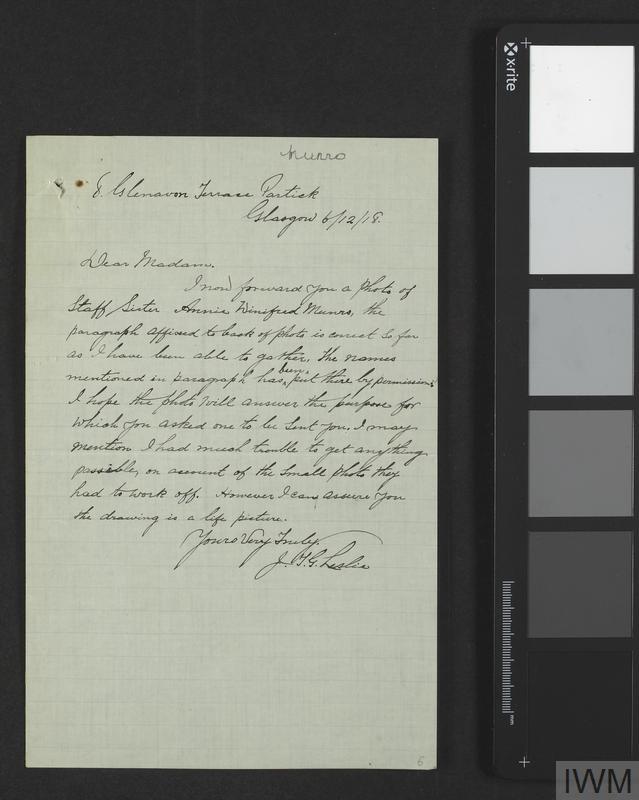 Munro
8. Glenavon Terrace Partick
Glasgow 6/12/18.
Dear Madam.
I now forward you a photo of
Staff Sister Annie Winifred Munro, the
paragraph affixed to back of photo is correct so far
as I have been able to gather, The names
mentioned in paragraph has been put there by permission.
I hope the photo will answer the purpose for
which you asked one to be sent you, I may
mention I had much trouble to get anything
passible, on account of the small photo they
had to work off. However I can assure you
the drawing is a life picture.
Yours Very Truly.
J. T. G. Leslie
6
x-rite
mm
IWM